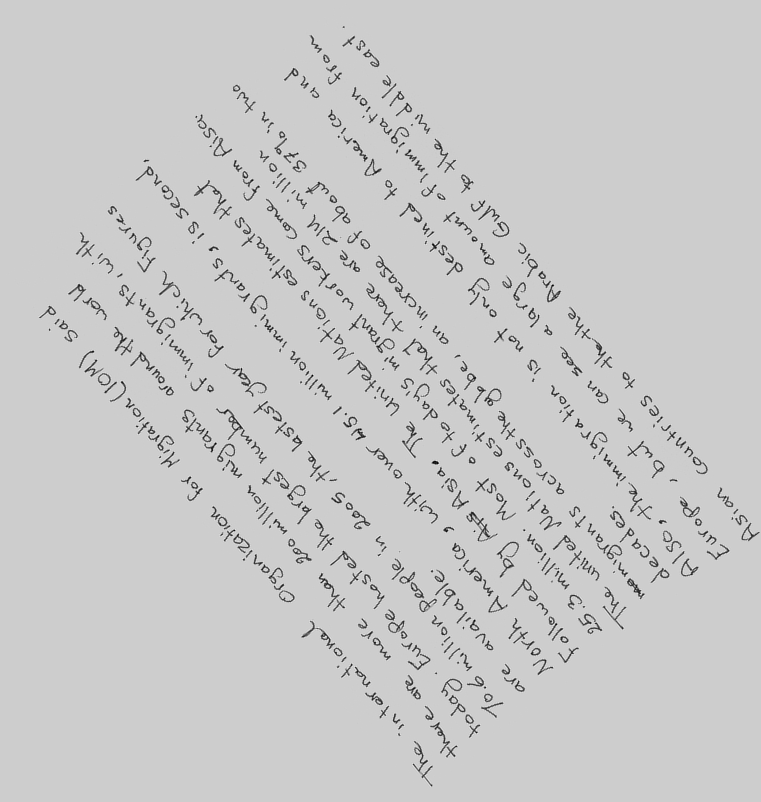 The international Organization for Migration (IOM) said
there are more than 200 million migrants around the world
today. Europe hosted the largest number of immigrants, with
70.6 million people in 2005, the lastest year for which Figures
are available.
North America, with over 45.1 million immigrants, is second,
Followed by Asia. The United Nations estimates that
25.3 million. Most of today's migrant workers come from Aisa.
The united Nations estimates that there are 214 million
migrants across the globe, an increase of about 37% in two
decades.
Also, the immigration is not only destined to America and
Europe, but we can see a large amount of immigration from
Asian countries to the the Arabic Gulf to the middle east.